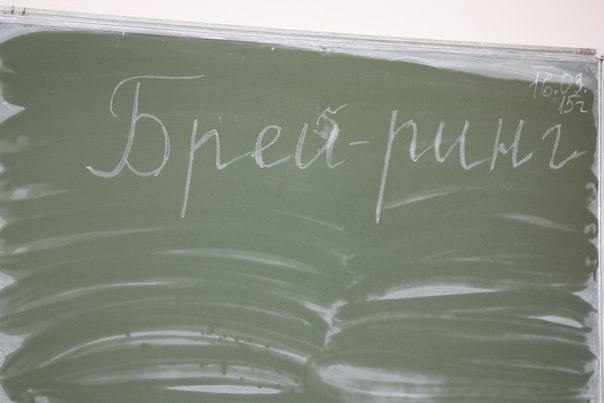 16.03.
15г
Брей-ринг